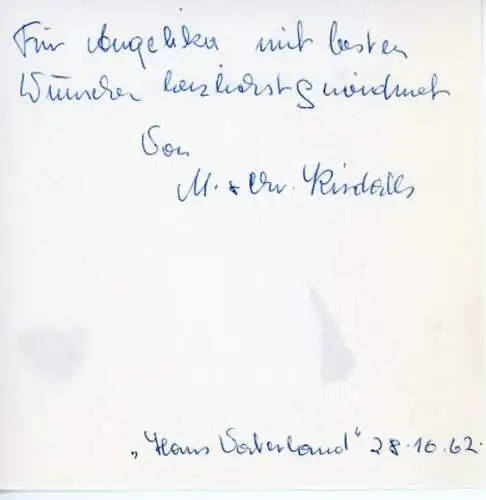 Für Angelika mit besten
Wünschen herzlichst gewidmet
Von
M. + Chr.
"Haus Vaterland" 28.10.62.